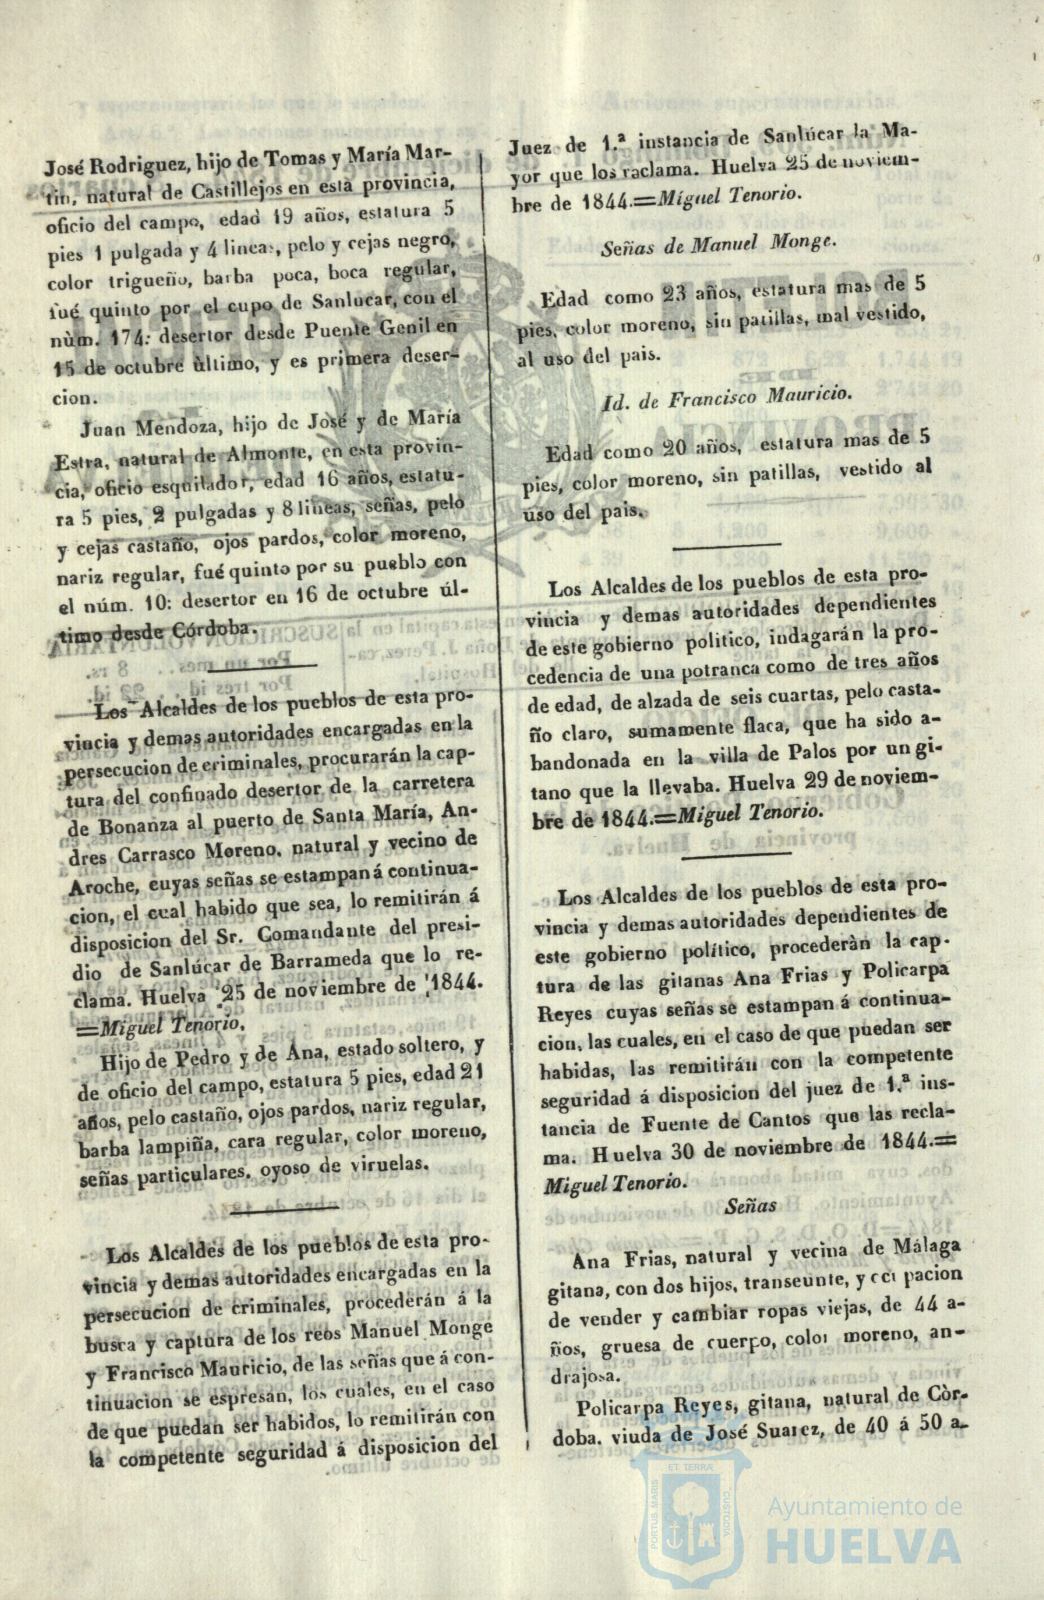 José Rodriguez, hijo de Tomas y María Mar-
tin, natural de Castillejos en esta provincia,
oficio del campo, edad 19 años, estatura 5
pies 1 pulgada y 4 lineas, pelo y cejas negro,
color trigueño, barba poca, boca regular,
fué quinto por el cupo de Sanlucar, con el
nùm. 174: desertor desde Puente Genil en
15 de octubre ùltimo, y es primera deser-
cion.
Juan Mendoza, hijo de José y de María
Estra, natural de Almonte, en esta provin-
cia, oficio esquilador, edad 16 años, estatu-
ra 5 pies, 2 pulgadas y 8 lineas, señas, pelo
y cejas castaño, ojos pardos, color moreno,
nariz regular, fué quinto por su pueblo con
el núm. 10: desertor en 16 de octubre úl-
timo desde Córdoba.
Los Alcaldes de los pueblos de esta pro-
vincia y demas autoridades encargadas en la
persecucion de criminales, procurarán la cap-
tura del confinado desertor de la carretera
de Bonanza al puerto de Santa María, An-
dres Carrasco Moreno, natural y vecino de
Aroche, cuyas señas se estampan á continua-
cion, el cual habido que sea, lo remitirán á
disposicion del Sr. Comandante del presi-
dio de Sanlúcar de Barrameda que lo re-
clama. Huelva 25 de noviembre de 1844.
=Miguel Tenorio.
Hijo de Pedro y de Ana, estado soltero, y
de oficio del campo, estatura 5 pies, edad 21
años, pelo castaño, ojos pardos, nariz regular,
barba lampiña, cara regular, color moreno,
señas particulares, oyoso de viruelas.
Los Alcaldes de los pueblos de esta pro-
vincia y demas autoridades encargadas en la
persecucion de criminales, procederán á la
busca y captura de los reos Manuel Monge
y Francisco Mauricio, de las señas que á con-
tinuacion se espresan, los cuales, en el caso
de que puedan ser habidos, lo remitirán con
la competente seguridad á disposicion del
Juez de 1.ª instancia de Sanlúcar la Ma-
yor que los raclama. Huelva 25 de noviem-
bre de 1844.=Miguel Tenorio.
Señas de Manuel Monge.
Edad como 23 años, estatura mas de 5
pies, color moreno, sin patillas, mal vestido,
al uso del pais.
Id. de Francisco Mauricio.
Edad como 20 años, estatura mas de 5
pies, color moreno, sin patillas, vestido al
uso del pais.
Los Alcaldes de los pueblos de esta pro-
vincia y demas autoridades dependientes
de este gobierno politico, indagarán la pro-
cedencia de una potranca como de tres años
de edad, de alzada de seis cuartas, pelo casta-
ño claro, sumamente flaca, que ha sido a-
bandonada en la villa de Palos por un gi-
tano que la llevaba. Huelva 29 de noviem-
bre de 1844.=Miguel Tenorio.
Los Alcaldes de los pueblos de esta pro-
vincia y demas autoridades dependientes de
este gobierno político, procederàn la cap-
tura de las gitanas Ana Frias y Policarpa
Reyes cuyas señas se estampan á continua-
cion, las cuales, en el caso de que puedan ser
habidas, las remitirán con la competente
seguridad á disposicion del juez de 1.ª ins-
tancia de Fuente de Cantos que las recla-
ma. Huelva 30 de noviembre de 1844.=
Miguel Tenorio.
Señas
Ana Frias, natural y vecina de Málaga
gitana, con dos hijos, transeunte, y pacion
de vender y cambiar ropas viejas, de 44 a-
ños, gruesa de cuerpo, color moreno, an-
drajosa.
Policarpa Reyes, gitana, natural de Còr-
doba, viuda de José Suarez, de 40 á 50 a-
PORTUS MARIS ET TERRÆ CUSTODIA
Ayuntamiento de
HUELVA